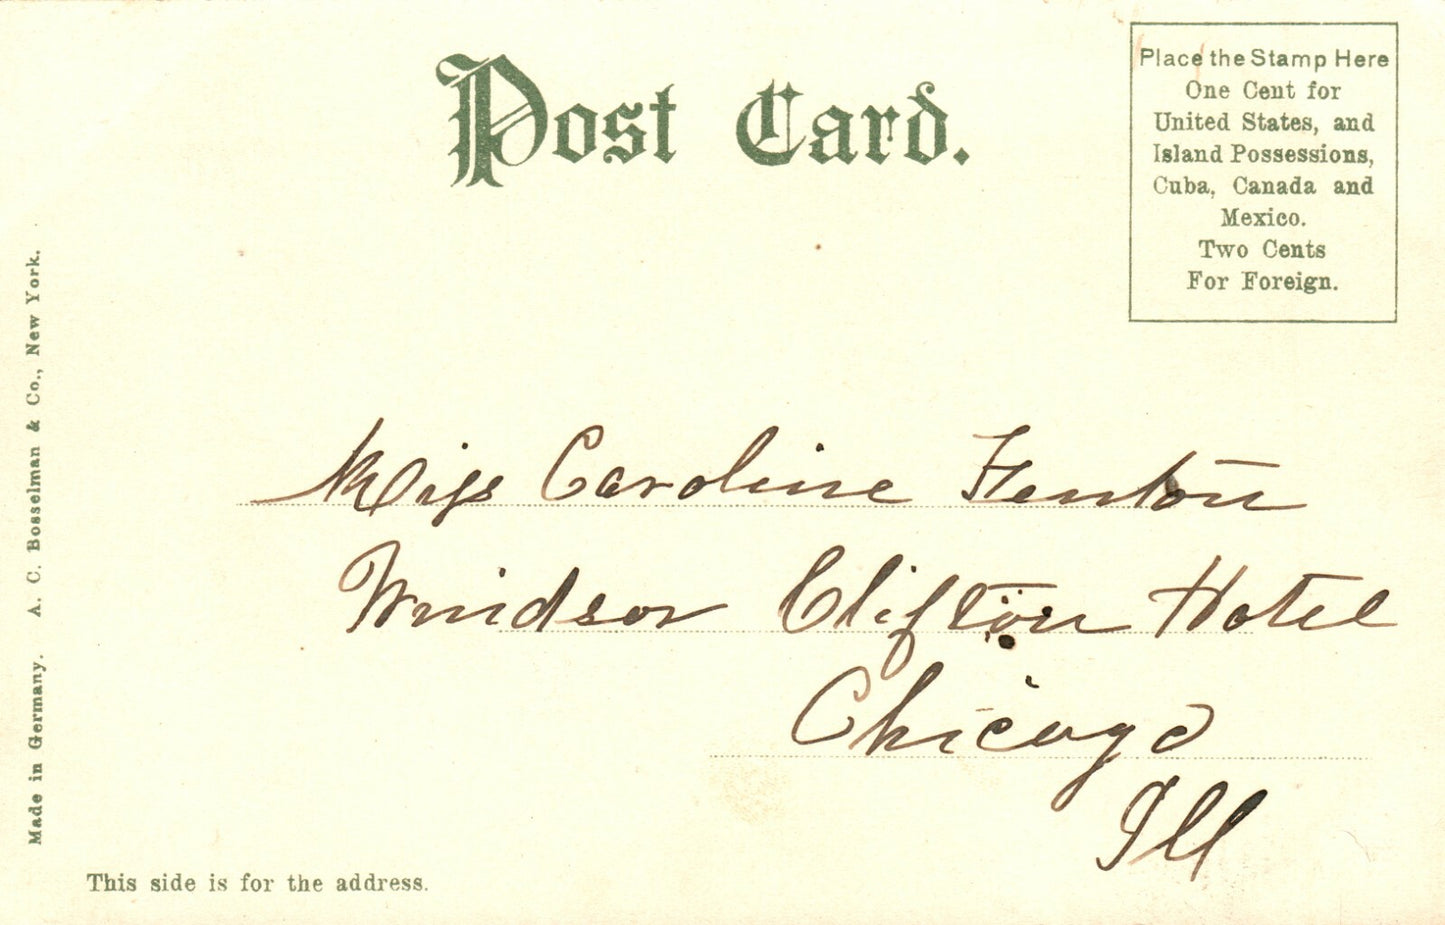 Post Card.
Place the Stamp Here
One Cent for
United States, and
Island Possessions,
Cuba, Canada and
Mexico.
Two Cents
For Foreign.
Miss Caroline Fenton
Windsor Clifton Hotel
Chicago
Ill
Made in Germany. A. C. Bosselman & Co., New York.
This side is for the address.